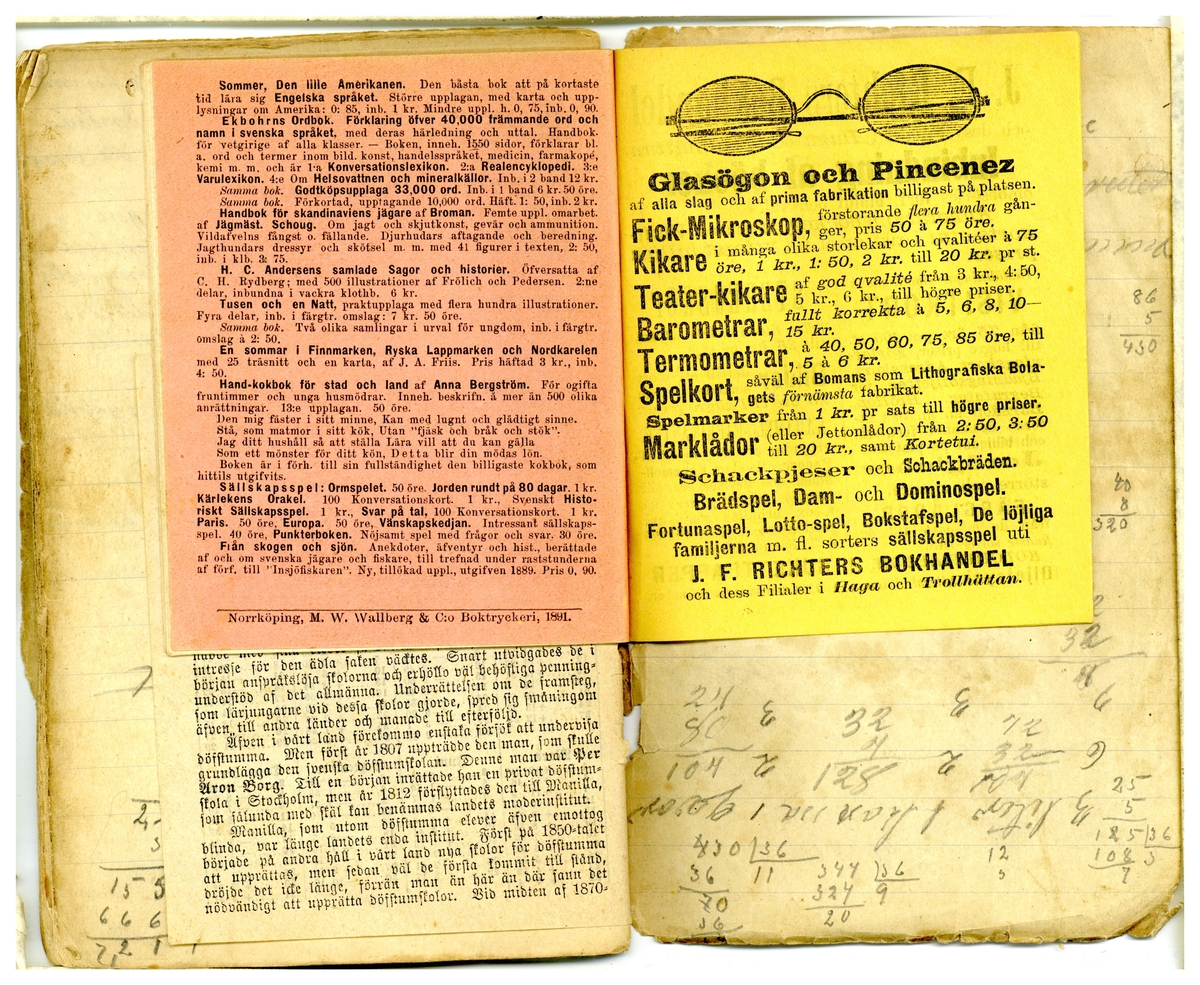 Sommer, Den lille Amerikanen. Den bästa bok att på kortaste
tid lära sig Engelska språket. Större upplagan, med karta och upp-
lysningar om Amerika: 0: 85, inb. 1 kr. Mindre uppl. h. 0, 75, inb. 0, 90.
Ekbohrns Ordbok. Förklaring öfver 40,000 främmande ord och
namn i svenska språket, med deras härledning och uttal. Handbok
för vetgirige af alla klasser. — Boken, inneh. 1550 sidor, förklarar bl.
a. ord och termer inom bild. konst, handelsspråket, medicin, farmakopé,
kemi m. m. och är 1:a Konversationslexikon. 2:a Realencyklopedi. 3:e
Varulexikon. 4:e Om Helsovattnen och mineralkällor. Inb. i 2 band 12 kr.
Samma bok. Godtköpsupplaga 33,000 ord. Inb. i 1 band 6 kr. 50 öre.
Samma bok. Förkortad, upptagande 10,000 ord. Häft. 1: 50, inb. 2 kr.
Handbok för skandinaviens jägare af Broman. Femte uppl. omarbet.
af Jägmäst. Schoug. Om jagt och skjutkonst, gevär och ammunition.
Vildafvelns fångst o. fällande. Djurhudars aftagande och beredning.
Jagthundars dressyr och skötsel m. m. med 41 figurer i texten, 2: 50,
inb. i klb. 3: 75.
H. C. Andersens samlade Sagor och historier. Öfversatta af
C. H. Rydberg; med 500 illustrationer af Frölich och Pedersen. 2:ne
delar, inbundna i vackra klothb. 6 kr.
Tusen och en Natt, praktupplaga med flera hundra illustrationer.
Fyra delar, inb. i färgtr. omslag: 7 kr. 50 öre.
Samma bok. Två olika samlingar i urval för ungdom, inb. i färgtr.
omslag à 2: 50.
En sommar i Finnmarken, Ryska Lappmarken och Nordkarelen
med 25 träsnitt och en karta, af J. A. Friis. Pris häftad 3 kr., inb.
4: 50.
Hand-kokbok för stad och land af Anna Bergström. För ogifta
fruntimmer och unga husmödrar. Inneh. beskrifn. å mer än 500 olika
anrättningar. 13:e upplagan. 50 öre.
Den mig fäster i sitt minne, Kan med lugnt och glädtigt sinne.
Stå, som matmor i sitt kök, Utan "fjäsk och bråk och stök".
Jag ditt hushåll så att ställa Lära vill att du kan gälla
Som ett mönster för ditt kön, Detta blir din mödas lön.
Boken är i förh. till sin fullständighet den billigaste kokbok, som
hittils utgifvits.
Sällskapsspel: Ormspelet. 50 öre. Jorden rundt på 80 dagar. 1 kr.
Kärlekens Orakel. 100 Konversationskort. 1 kr., Svenskt Histo-
riskt Sällskapsspel. 1 kr., Svar på tal, 100 Konversationskort. 1 kr.
Paris. 50 öre, Europa. 50 öre, Vänskapskedjan. Intressant sällskaps-
spel. 40 öre, Punkterboken. Nöjsamt spel med frågor och svar. 30 öre.
Från skogen och sjön. Anekdoter, äfventyr och hist., berättade
af och om svenska jägare och fiskare, till trefnad under raststunderna
af förf. till "Insjöfiskaren". Ny, tillökad uppl., utgifven 1889. Pris 0, 90.
Norrköping, M. W. Wallberg & C:o Boktryckeri, 1891.
intresse för den ädla saken väcktes. Snart utvidgades de i
början anspråkslösa skolorna och erhöllo väl behöfliga penning-
understöd af det allmänna. Underrättelsen om de framsteg,
som lärjungarne vid dessa skolor gjorde, spred sig småningom
äfven till andra länder och manade till efterföljd.
Äfven i vårt land förekommo enstaka försök att undervisa
döfstumma. Men först år 1807 uppträdde den man, som skulle
grundlägga den svenska döfstumskolan. Denne man var Per
Aron Borg. Till en början inrättade han en privat döfstum-
skola i Stockholm, men år 1812 förflyttades den till Manilla,
som sålunda med skäl kan benämnas landets moderinstitut.
Manilla, som utom döfstumma elever äfven emottog
blinda, var länge landets enda institut. Först på 1850-talet
började på andra håll i vårt land nya skolor för döfstumma
att upprättas, men sedan väl de första kommit till stånd,
dröjde det icke länge, förrän man än här än där fann det
nödvändigt att upprätta döfstumskolor. Vid midten af 1870-
Glasögon och Pincenez
af alla slag och af prima fabrikation billigast på platsen.
Fick-Mikroskop, förstorande flera hundra gån-
ger, pris 50 à 75 öre.
Kikare i många olika storlekar och qvalitéer à 75
öre, 1 kr., 1: 50, 2 kr. till 20 kr. pr st.
Teater-kikare af god qvalité från 3 kr., 4: 50,
5 kr., 6 kr., till högre priser.
Barometrar, fullt korrekta à 5, 6, 8, 10—
15 kr.
Termometrar, à 40, 50, 60, 75, 85 öre, till
5 à 6 kr.
Spelkort, såväl af Bomans som Lithografiska Bola-
gets förnämsta fabrikat.
Spelmarker från 1 kr. pr sats till högre priser.
Marklådor (eller Jettonlådor) från 2: 50, 3: 50
till 20 kr., samt Kortetui.
Schackpjeser och Schackbräden.
Brädspel, Dam- och Dominospel.
Fortunaspel, Lotto-spel, Bokstafspel, De löjliga
familjerna m. fl. sorters sällskapsspel uti
J. F. RICHTERS BOKHANDEL
och dess Filialer i Haga och Trollhättan.
86
5
430
40
8
320
32
25
5
125 36
108 3
430 36
36 11
70
36
344 36
324 9
20
12